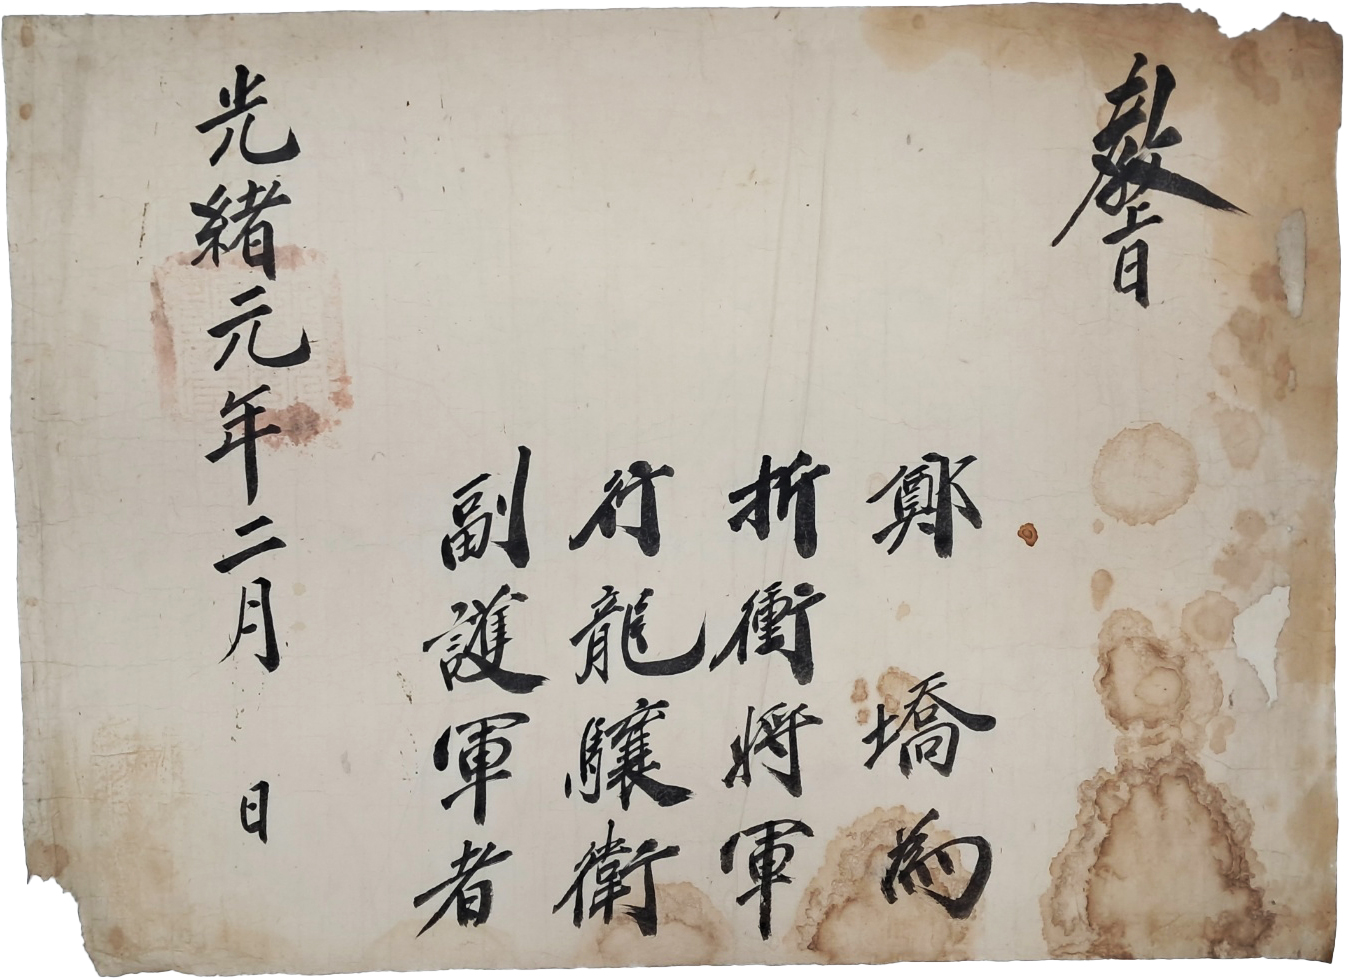 教旨
鄭墧爲
折衝將軍
行龍驤衛
副護軍者
光緒元年二月 日